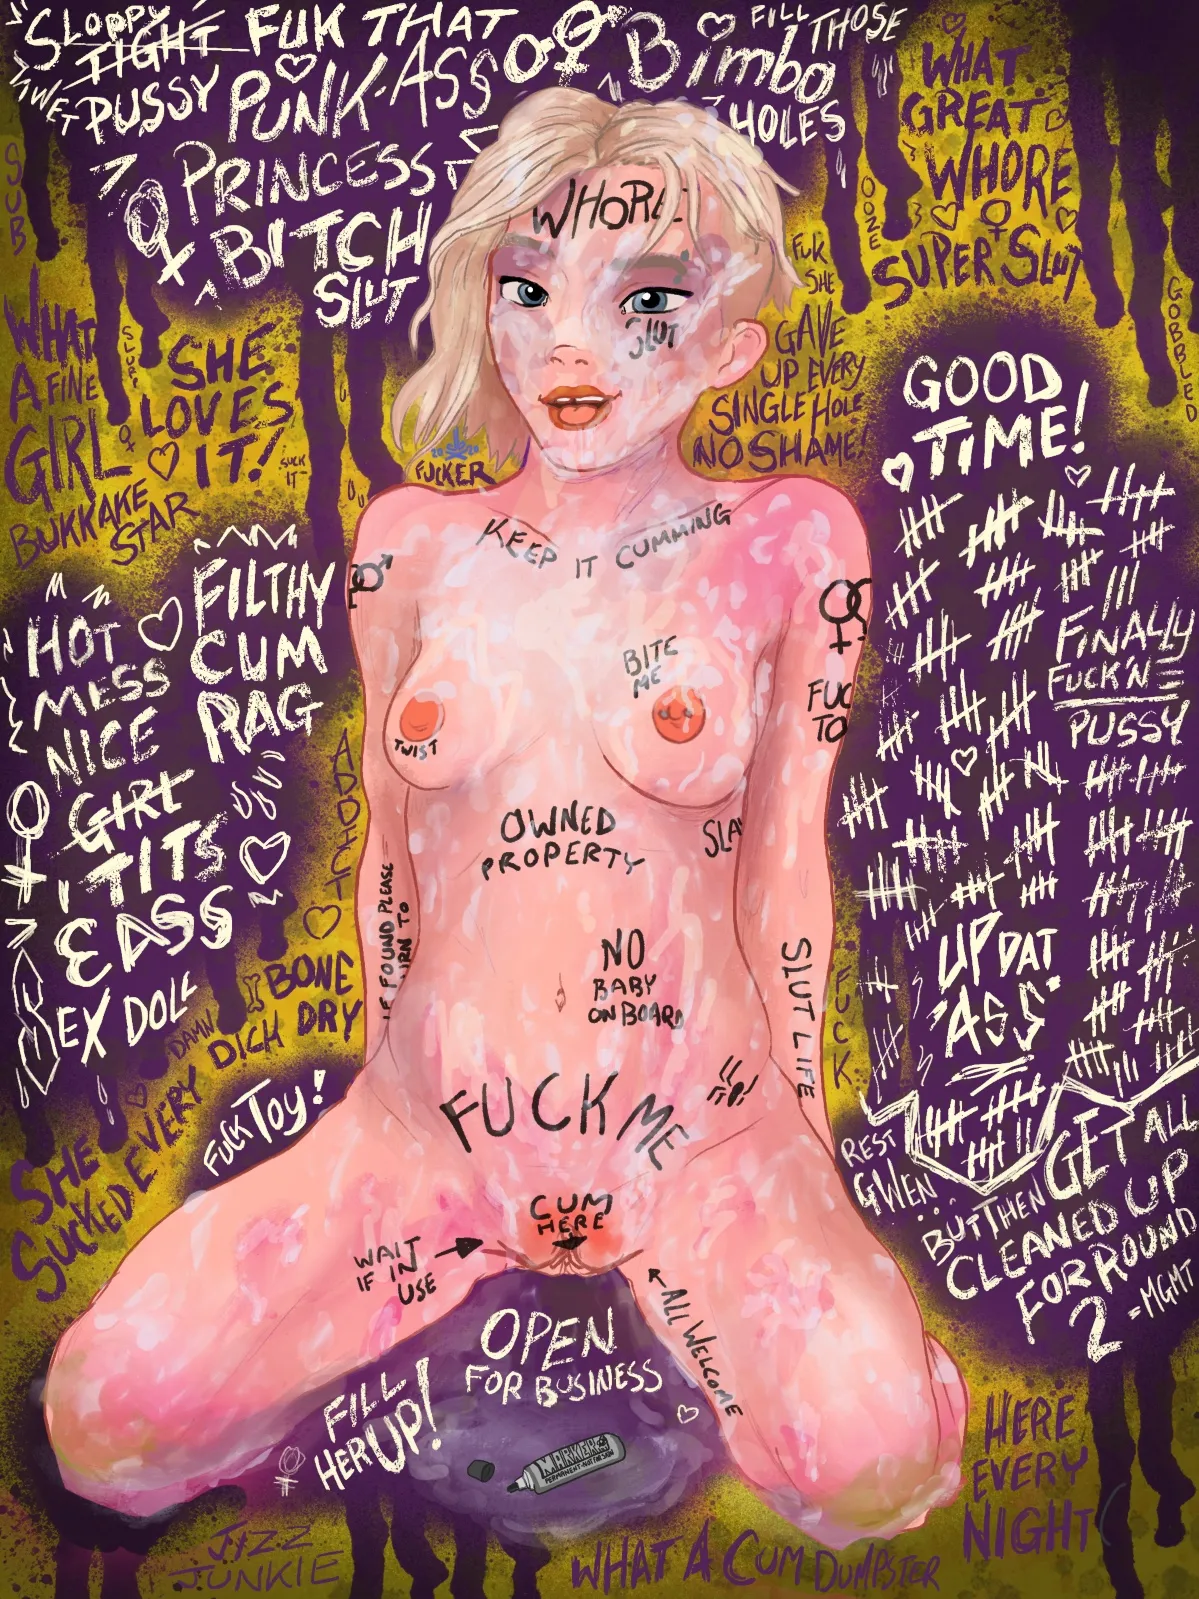 SLOPPY
TIGHT
WET PUSSY
FUK THAT
PUNK-ASS
PRINCESS
BITCH
SLUT
Bimbo
FILL THOSE
HOLES
WHAT
GREAT
WHORE
SUPER SLUT
SUB
OOZE
GOBBLED
WHORE
SLUT
WHAT
A FINE
GIRL
SLURP
SHE
LOVES
IT!
SUCK
IT
BUKKAKE
STAR
FUK
SHE
GAVE
UP EVERY
SINGLE HOLE
NO SHAME!
2020
FUCKER
GOOD
TIME!
KEEP IT CUMMING
FILTHY
CUM
RAG
HOT
MESS
NICE
GIRL
TITS
& ASS
SEX DOLL
BITE
ME
TWIST
FUC
TO
FINALLY
FUCK'N
PUSSY
ADDICT
OWNED
PROPERTY
SLA
IF FOUND PLEASE
URN TO
NO
BABY
ON BOARD
SLUT LIFE
FUCK
UP DAT
ASS
I BONE
DAMN DICH DRY
SHE
SUCKED EVERY
FUCK TOY!
FUCK ME
REST
GWEN
BUT THEN GET ALL
CLEANED UP
FOR ROUND
2 -MGMT
CUM
HERE
WAIT
IF IN
USE
ALL WELCOME
OPEN
FOR BUSINESS
FILL
HER UP!
MARKER
PERMANENT-NOT FOR SKIN
HERE
EVERY
NIGHT
JIZZ
JUNKIE
WHAT A CUM DUMPSTER